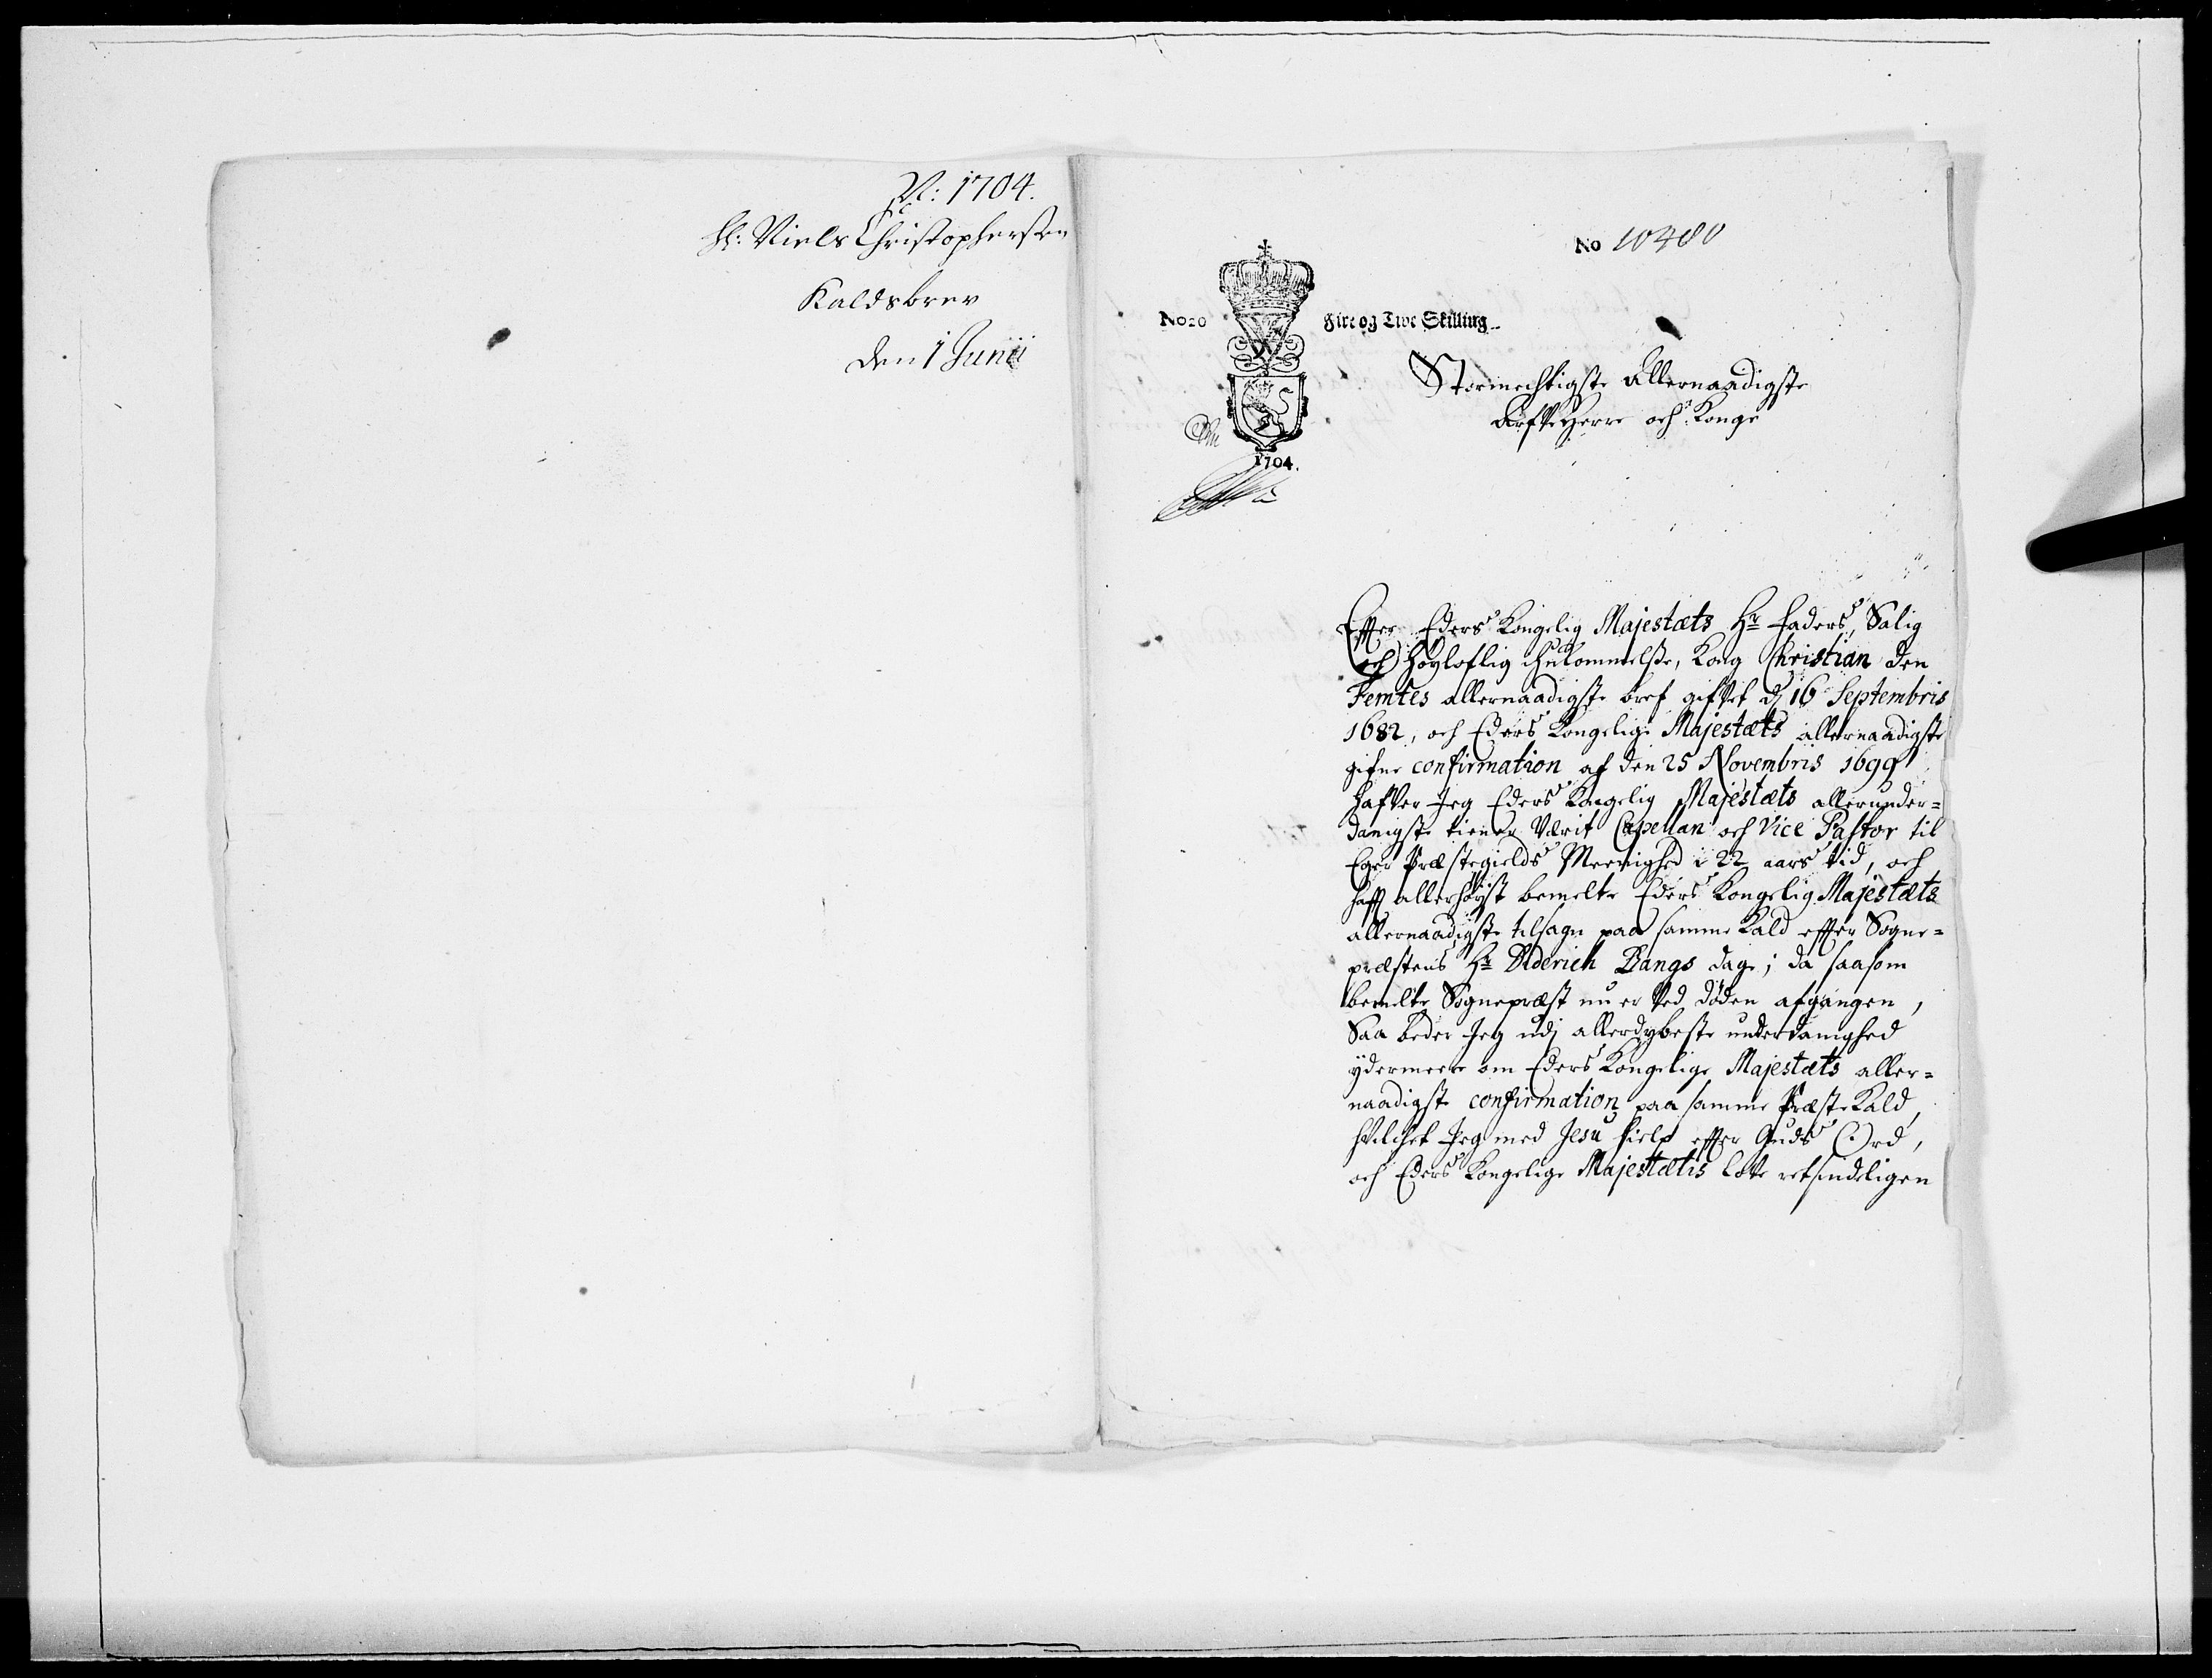 Nl: 1704.
Hl: Niels Christophersen
Kaldsbrev
den 1 Junii
No 10480
No20
Fire og Tive Skilling
1704.
Stormechtigste Allernaadigste
Arfve Herre och Konge
Effter Eders Kongelig Majestæts Hr Faders, Salig
och Høyloflig ihukommelsse, Kong Christian den
Femtes allernaadigste bref gifvet dj 16 Septembris
1682, och Eders Kongelige Majestæts allernaadigste
gifne confirmation af den 25 Novembris 1699
hafver Jeg Eders Kongelig Majestæts allerunder=
danigste tiener Værit Capellan och Vice Pastor til
Eger Præstegields Meenighed i 22 aars tid, och
haff allerhøyst bemelte Eders Kongelig Majestæts
allernaadigste tilsagn paa samme Kald effter Sogne=
præstens Hr Diderich Bangs dage; da saasom
bemelte Sognepræst nu er Ved døden afgangen,
Saa beder Jeg udj allerdybeste underdanighed
ydermeere om Eders Kongelige Majestæts aller=
naadigste confirmation paa samme Præste Kald,
hvilchet Jeg med Jesu hielp effter Guds Ord,
och Eders Kongelige Majestætis Lове retsindeligen